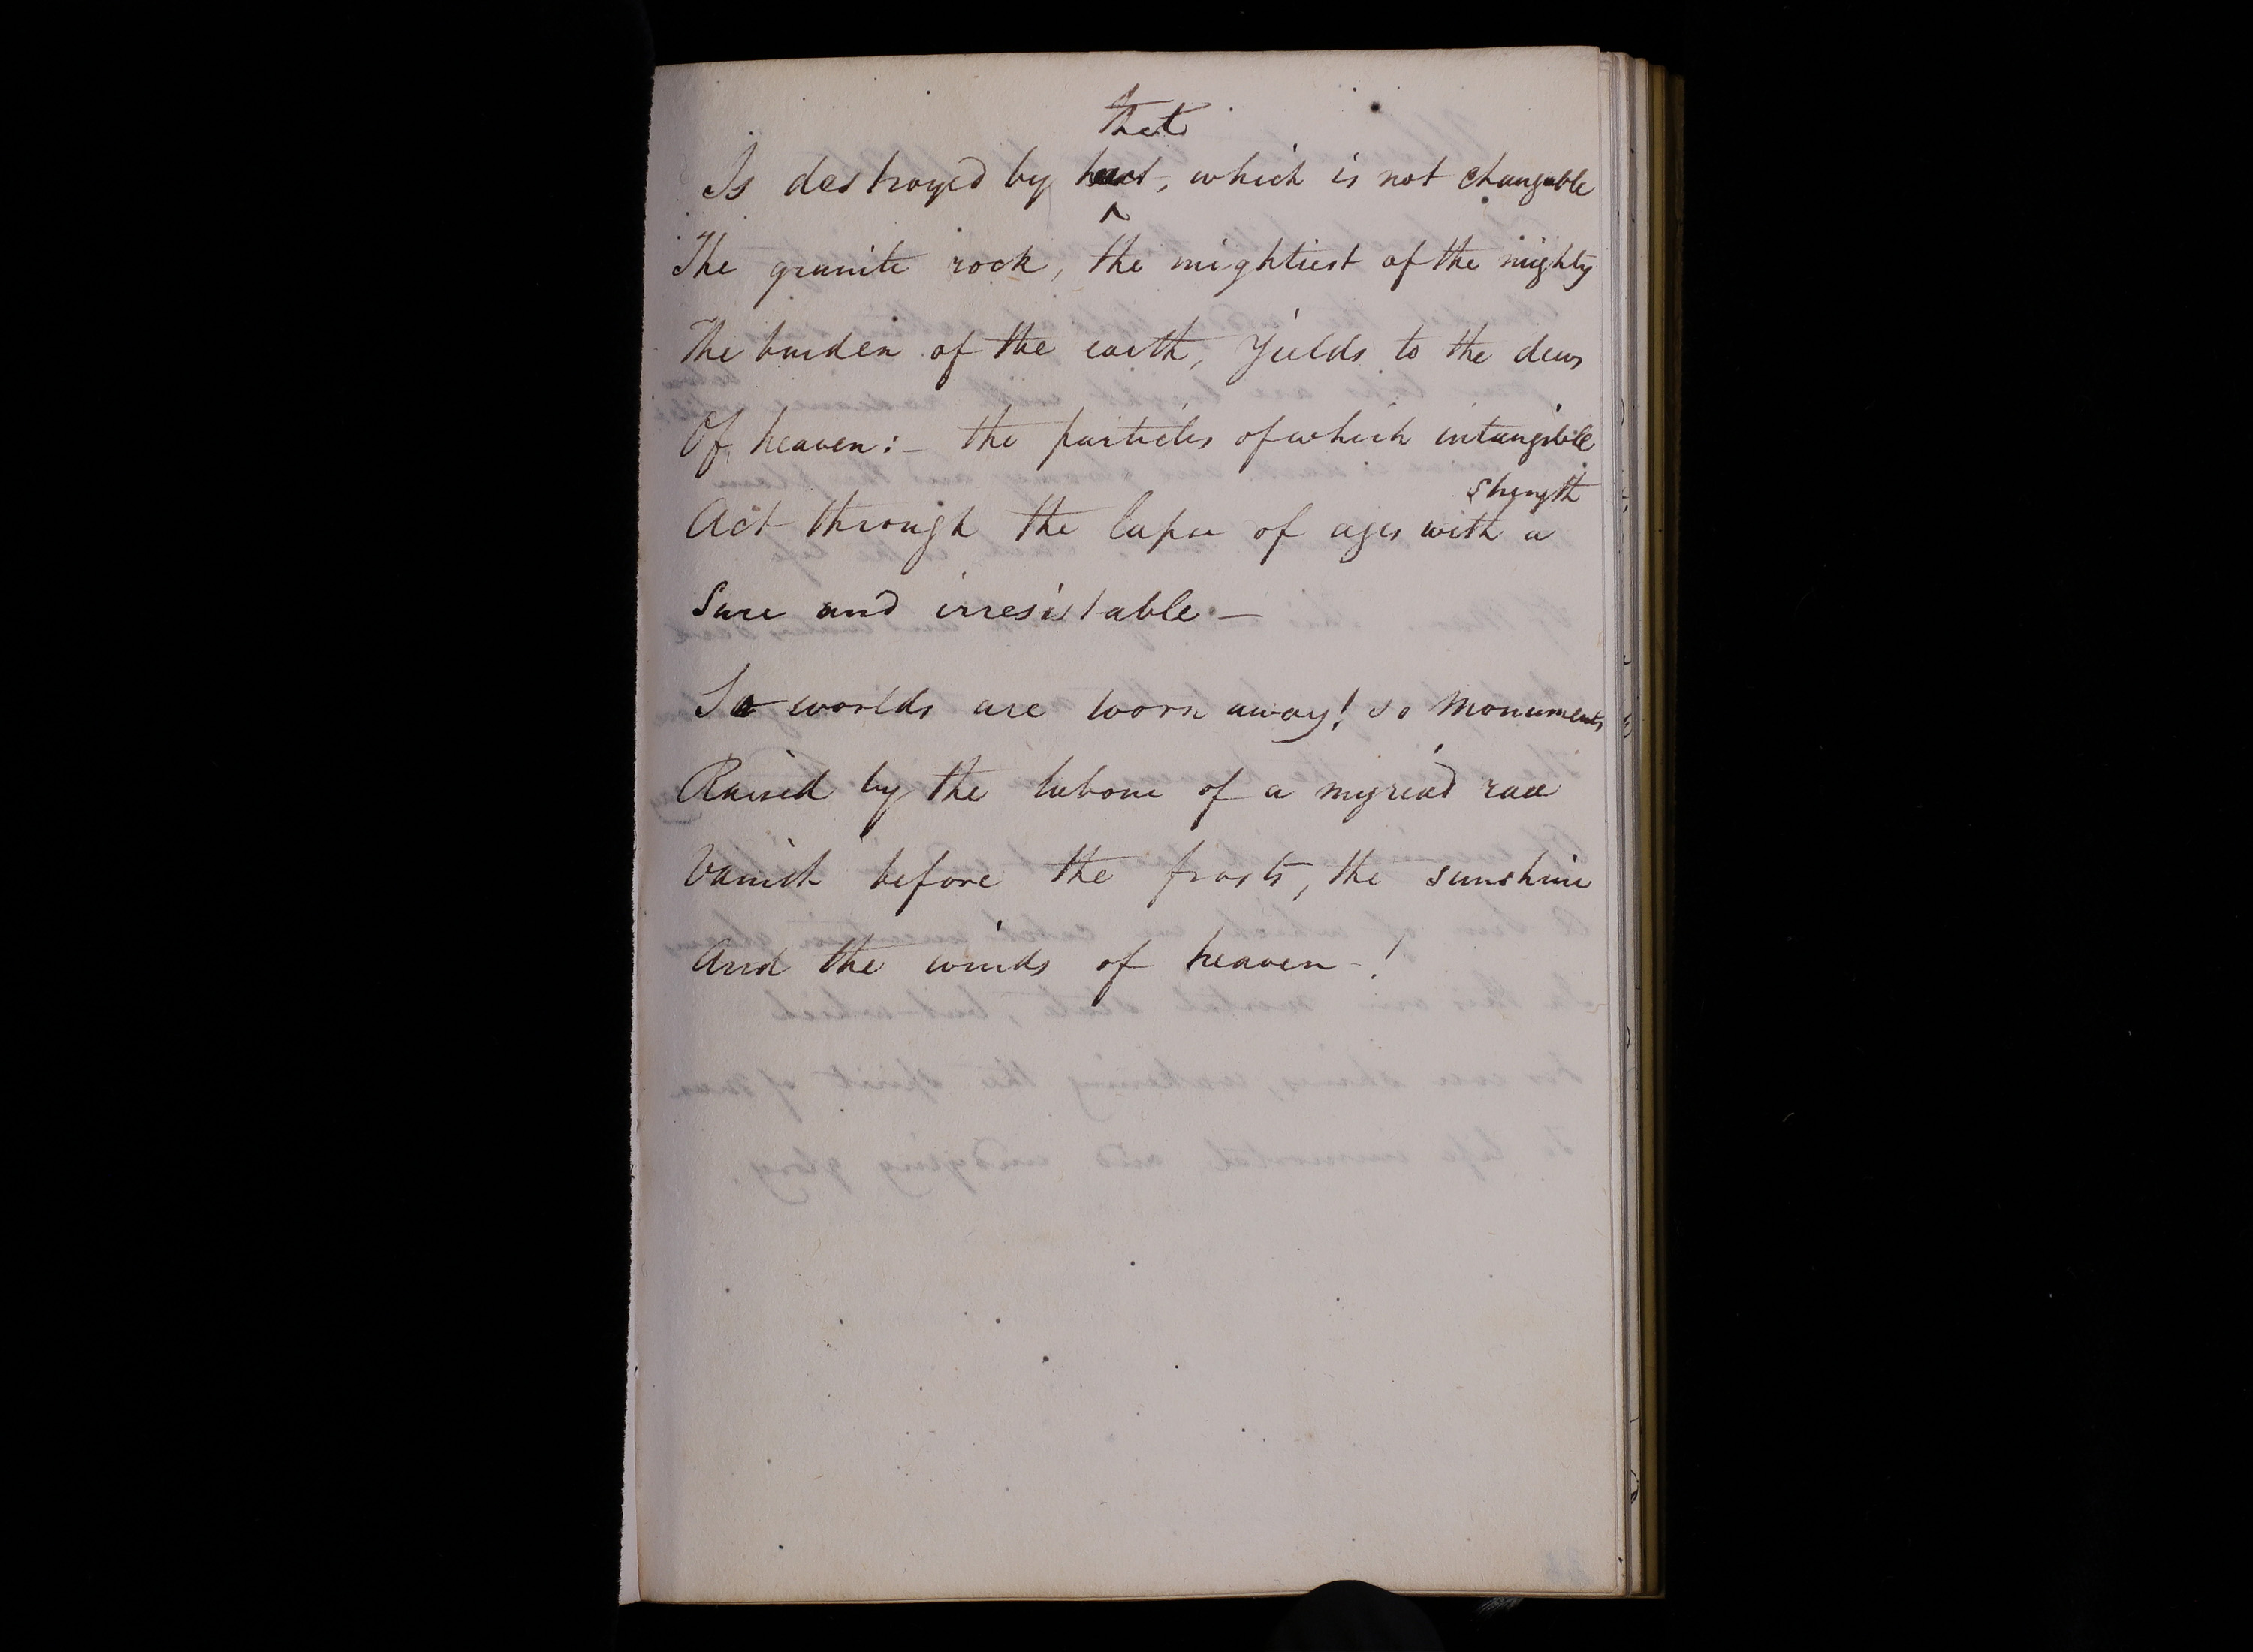 that
Is destroyed by , which is not changable
The granite rock, the mightiest of the mighty
The burden of the earth, Yields to the dews
Of heaven:- the particles of which intangible
strength
Act through the lapse of ages with a
Sure and irresistable -
So worlds are worn away! so monuments
Raised by the labour of a myriad race
Vanish before the frosts, the sunshine
And the winds of heaven -!